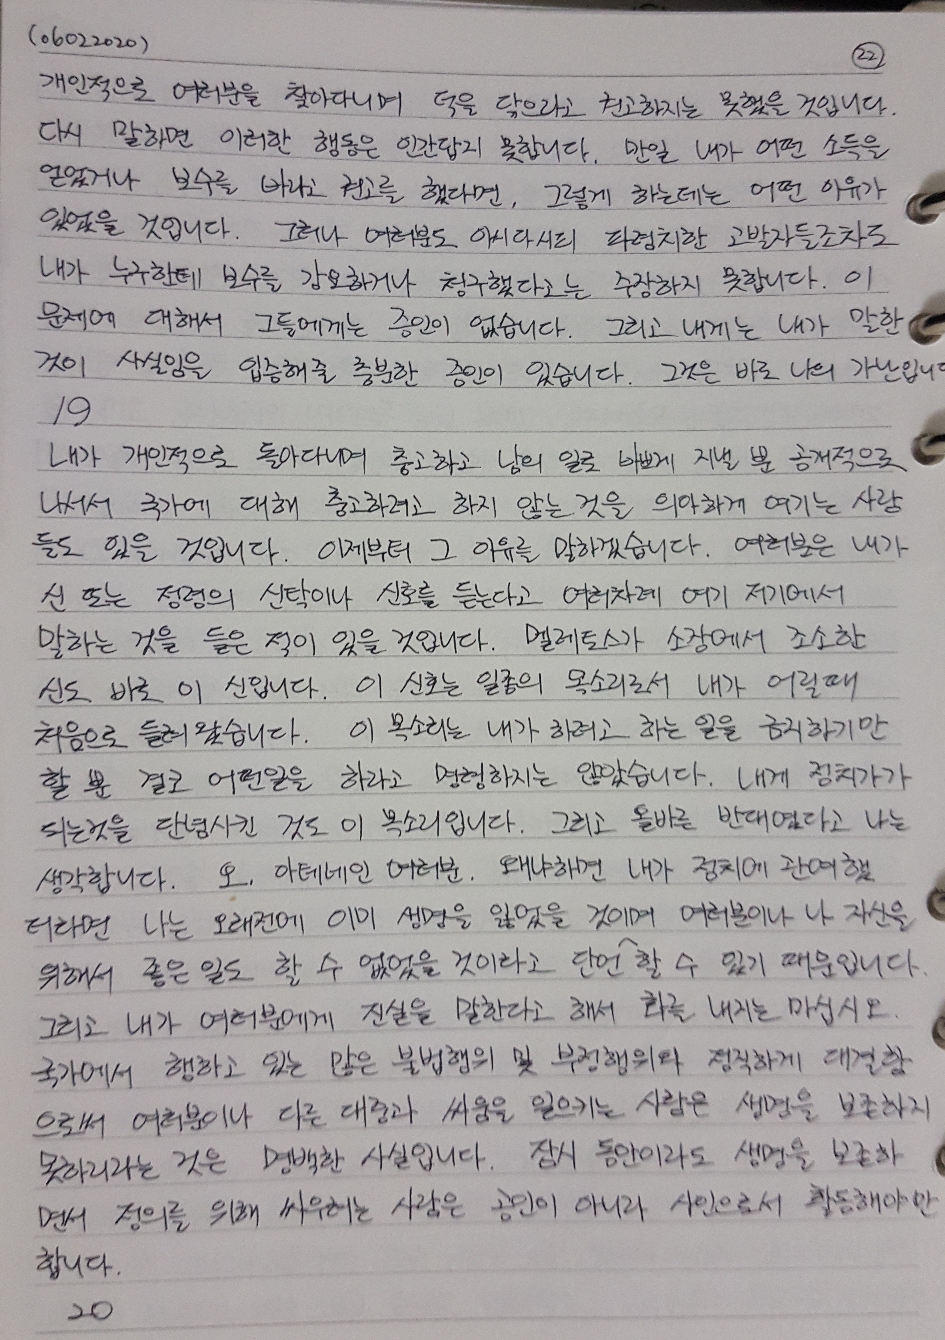 (06022020)
22
개인적으로 여러분을 찾아다니며 덕을 닦으라고 권고하지는 못했을 것입니다.
다시 말하면 이러한 행동은 인간답지 못합니다. 만일 내가 어떤 소득을
얻었거나 보수를 바라고 권고를 했다면, 그렇게 하는데는 어떤 이유가
있었을 것입니다. 그러나 여러분도 아시다시피 파렴치한 고발자들조차도
내가 누구한테 보수를 강요하거나 청구했다고는 주장하지 못합니다. 이
문제에 대해서 그들에게는 증인이 없습니다. 그리고 내게는 내가 말한
것이 사실임을 입증해줄 충분한 증인이 있습니다. 그것은 바로 나의 가난입니다
19
내가 개인적으로 돌아다니며 충고하고 남의 일로 바쁘게 지낼 뿐 공개적으로
나서서 국가에 대해 충고하려고 하지 않는 것을 의아하게 여기는 사람
들도 있을 것입니다. 이제부터 그 이유를 말하겠습니다. 여러분은 내가
신 또는 정령의 신탁이나 신호를 듣는다고 여러차례 여기 저기에서
말하는 것을 들은 적이 있을 것입니다. 멜레토스가 소장에서 조소한
신도 바로 이 신입니다. 이 신호는 일종의 목소리로서 내가 어릴때
처음으로 들려왔습니다. 이 목소리는 내가 하려고 하는 일을 금지하기만
할 뿐 결코 어떤일을 하라고 명령하지는 않았습니다. 내게 정치가가
되는것을 단념시킨 것도 이 목소리입니다. 그리고 올바른 반대였다고 나는
생각합니다. 오, 아테네인 여러분. 왜냐하면 내가 정치에 관여했
더라면 나는 오래전에 이미 생명을 잃었을 것이며 여러분이나 나 자신을
위해서 좋은 일도 할 수 없었을 것이라고 단언 할 수 있기 때문입니다.
그리고 내가 여러분에게 진실을 말한다고 해서 화를 내지는 마십시오.
국가에서 행하고 있는 많은 불법행위 및 부정행위와 정직하게 대결함
으로써 여러분이나 다른 대중과 싸움을 일으키는 사람은 생명을 보존하지
못하리라는 것은 명백한 사실입니다. 잠시 동안이라도 생명을 보존하
면서 정의를 위해 싸우려는 사람은 공인이 아니라 사인으로서 활동해야만
합니다.
20